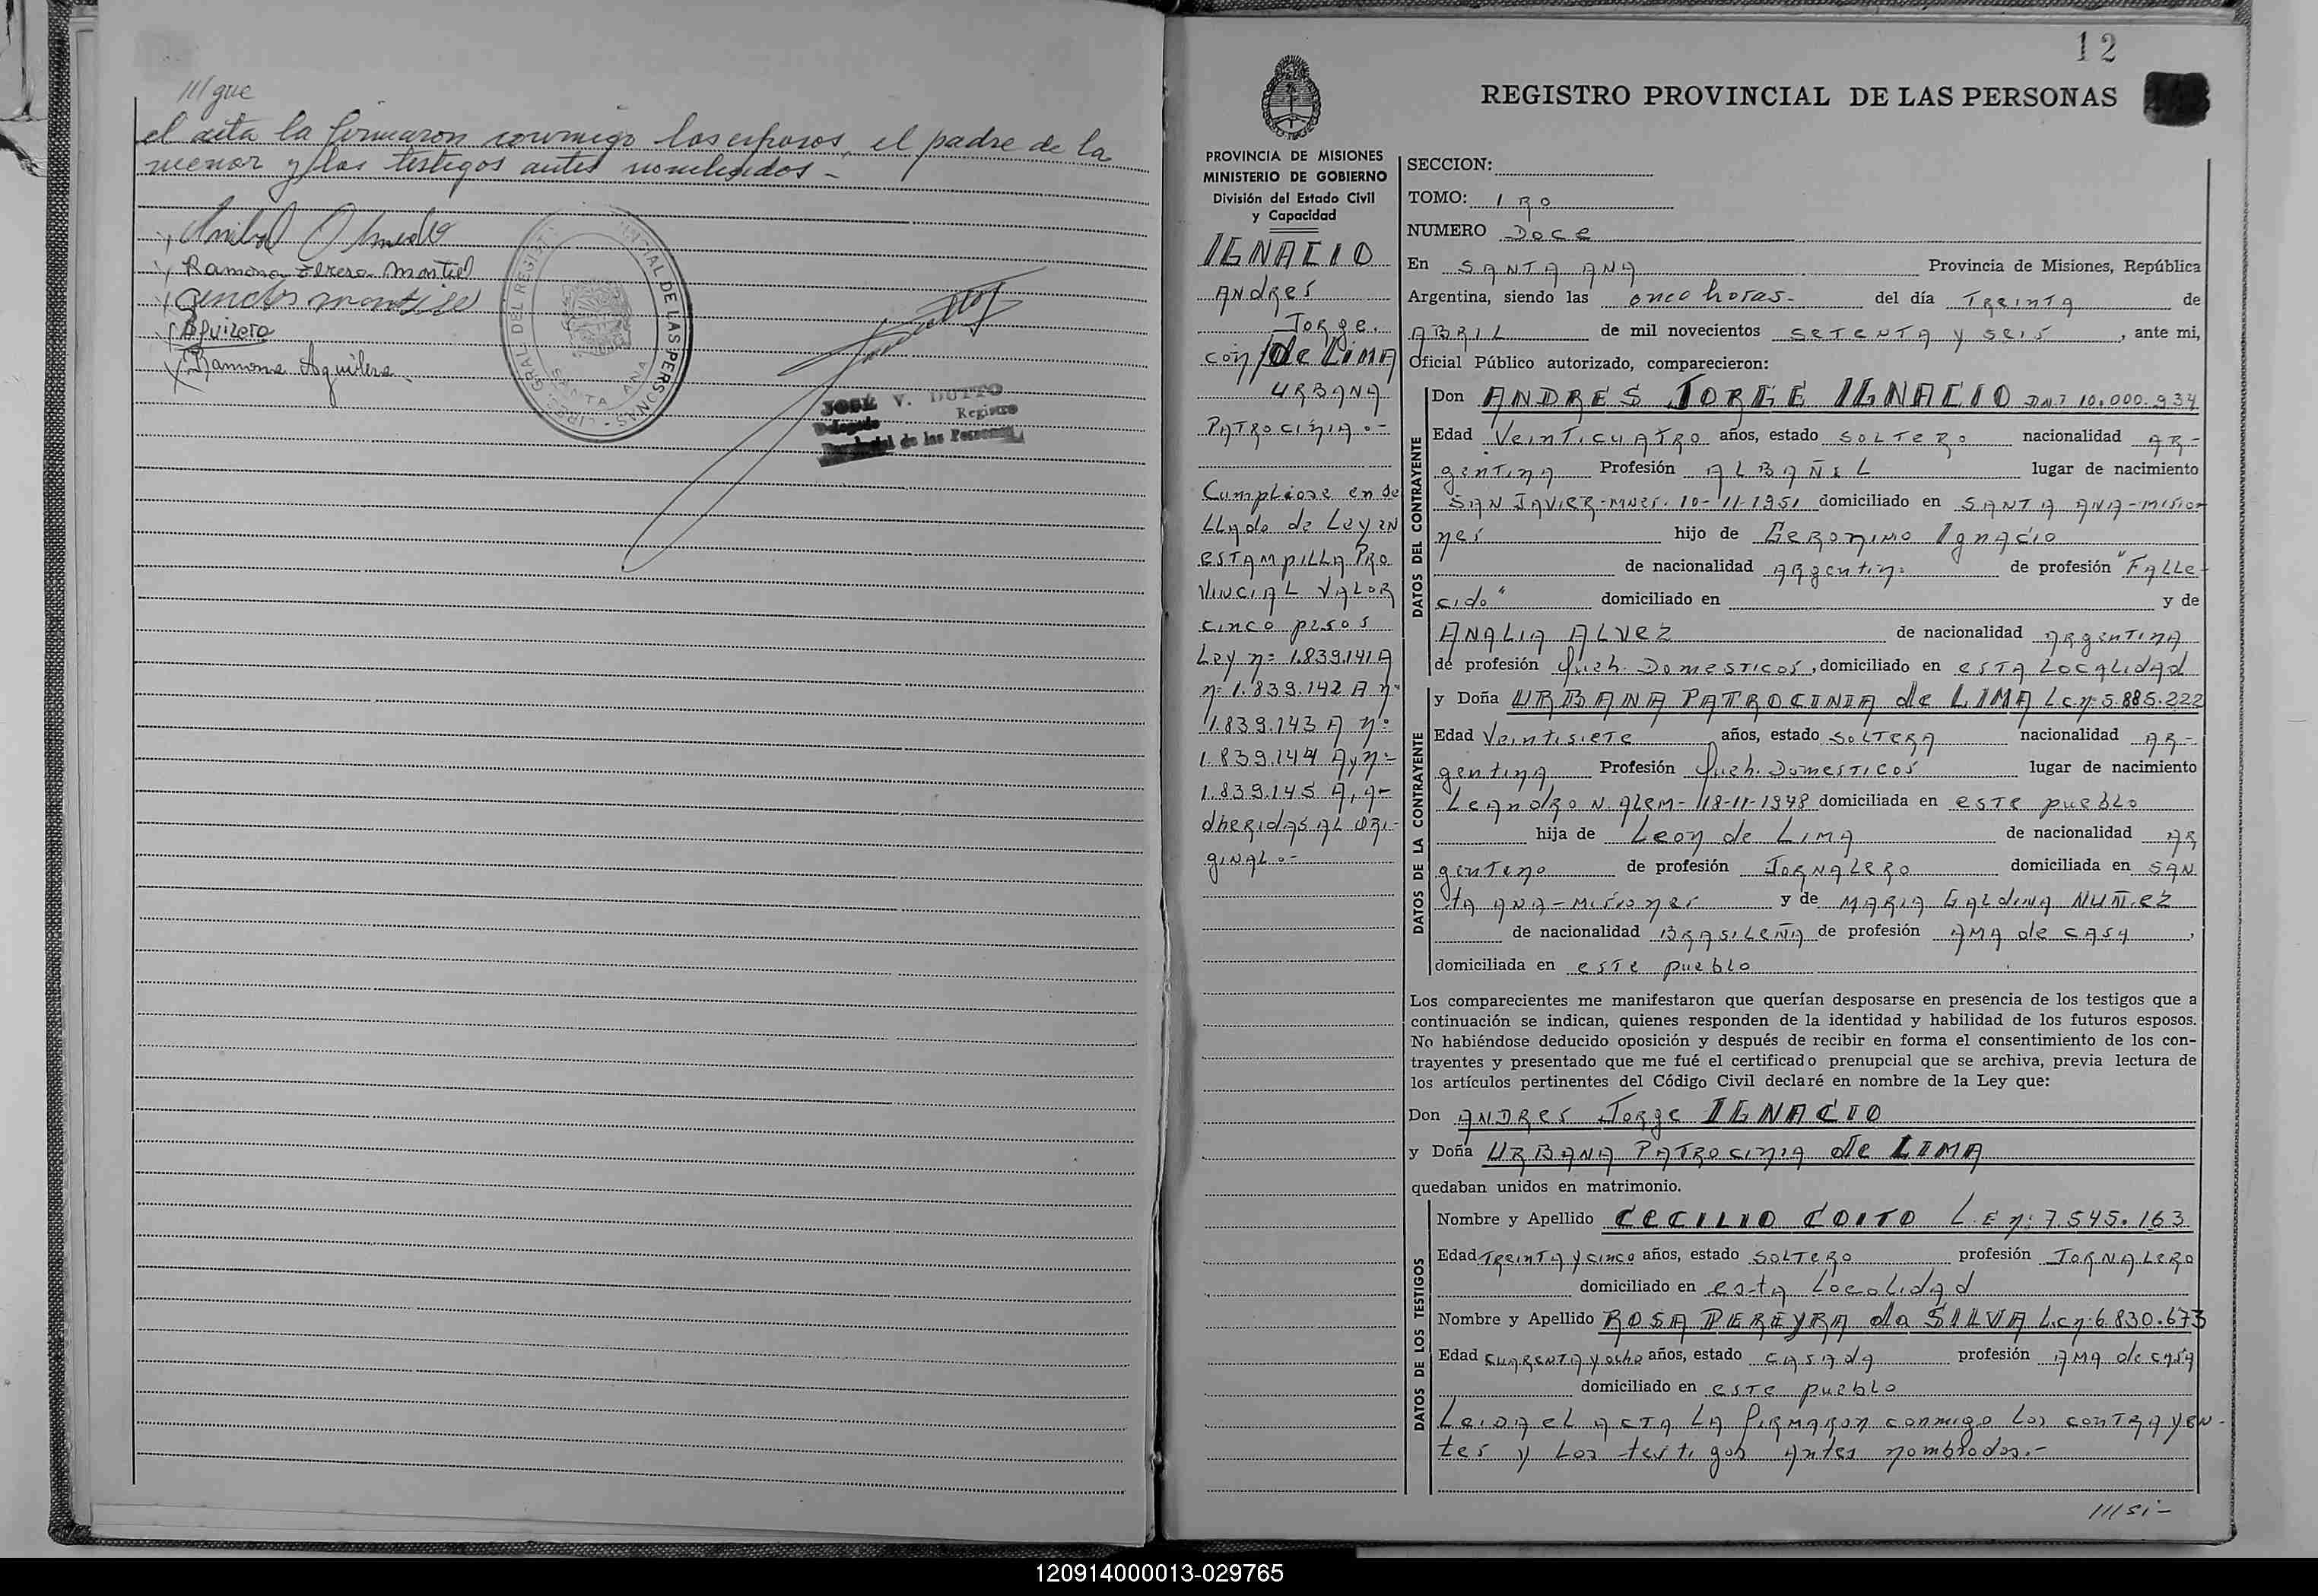 /// gue
el acta la firmaron conmigo los esposos, el padre de la
menor y los testigos antes nombrados -
Anibal Olmedo
Ramona Montiel
Aguilera
Ramona Aguilera
SANTA ANA
JOSÉ V. DUTTO
Delegado Registro
Provincial de las Personas
12
REGISTRO PROVINCIAL DE LAS PERSONAS
PROVINCIA DE MISIONES
MINISTERIO DE GOBIERNO
División del Estado Civil
y Capacidad
IGNACIO
ANdRes
JoRge.
con/de LIMA
URBANA
PATROCINIA.-
Cumpliose en se
LLAdo de Ley en
ESTAMPILLA PRO
VINCIAL VALOR
CINCO PESOS
Ley nº 1.839.141 A
nº 1.839.142 A nº
1.839.143 A nº
1.839.144 A y nº
1.839.145 A, A-
dheRidAS AL ORI-
giNAL.-
SECCION:
TOMO: 1RO
NUMERO DOCE
En SANTA ANA Provincia de Misiones, República
Argentina, siendo las once horas.- del día TReinTA de
ABRIL de mil novecientos SETENTA y SEIS, ante mi,
Oficial Público autorizado, comparecieron:
DATOS DEL CONTRAYENTE
Don ANDRES JORGE IGNACIO DNI 10.000.934
Edad VeinTicuATRO años, estado SOLTERO nacionalidad AR-
genTinA Profesión ALBAÑIL lugar de nacimiento
SAN JAVIER-Mnes. 10-11-1951 domiciliado en SANTA ANA-Misio-
nes hijo de GeRonimo IgnAcio
de nacionalidad ARgentinº de profesión "FALLe-
cido" domiciliado en y de
ANALIA ALVEZ de nacionalidad ARgenTINA
de profesión Queh. DomesTicos, domiciliado en esTA LocALidAd
DATOS DE LA CONTRAYENTE
y Doña URBANA PATROCINIA de LIMA Lc nº 5.885.222
Edad VeinTisieTe años, estado SOLTERA nacionalidad AR-
genTinA Profesión Queh. DomesTicos lugar de nacimiento
LeAndRo N. ALem- 18-11-1948 domiciliada en esTe pueblo
hija de Leon de LimA de nacionalidad AR
genTino de profesión JORNALERO domiciliada en SAN
TA ANA-Misiones y de MARIA GALdinA NUÑEZ
de nacionalidad BRASILEÑA de profesión AMA de CASA,
domiciliada en esTe pueblo
Los comparecientes me manifestaron que querían desposarse en presencia de los testigos que a
continuación se indican, quienes responden de la identidad y habilidad de los futuros esposos.
No habiéndose deducido oposición y después de recibir en forma el consentimiento de los con-
trayentes y presentado que me fué el certificado prenupcial que se archiva, previa lectura de
los artículos pertinentes del Código Civil declaré en nombre de la Ley que:
Don ANDRes JoRge IGNACIO
y Doña URBANA PATROCINIA de LIMA
quedaban unidos en matrimonio.
DATOS DE LOS TESTIGOS
Nombre y Apellido CECILIO COITO L.E nº 7.545.163
Edad TReinTA y cinco años, estado SOLTERO profesión JORNALERO
domiciliado en esTA LocALidAd
Nombre y Apellido ROSA PEREYRA da SILVA Lc nº 6.830.673
Edad cuARenTA y ocho años, estado CASAdA profesión AMA de CASA
domiciliado en esTe pueblo
LeidA eL ACTA LA fiRmARon conmigo Los conTRAyen-
tes y Los testigos Antes nombrados.-
/// si-
120914000013-029765